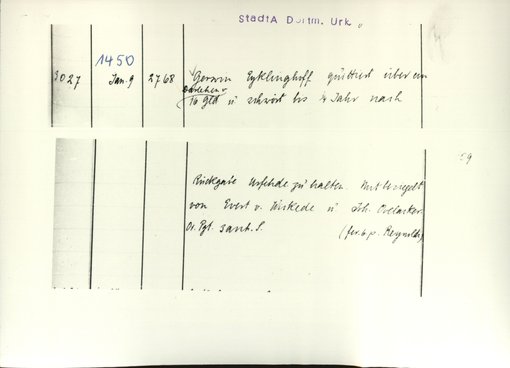 StadtA Dortm. Urk.
1450
3027 Jan. 9 2768 Gerwin Eyklinghoff quittiert über ein
Darlehen v.
16 Gld u schwört bis ¼ Jahr nach
59
Rückgabe Urfehde zu halten. Mit besiegelt
von Evert v. Wickede u Joh.
Or. Pgt. 3 anh. S. (fer. 6 p. Reynoldi)